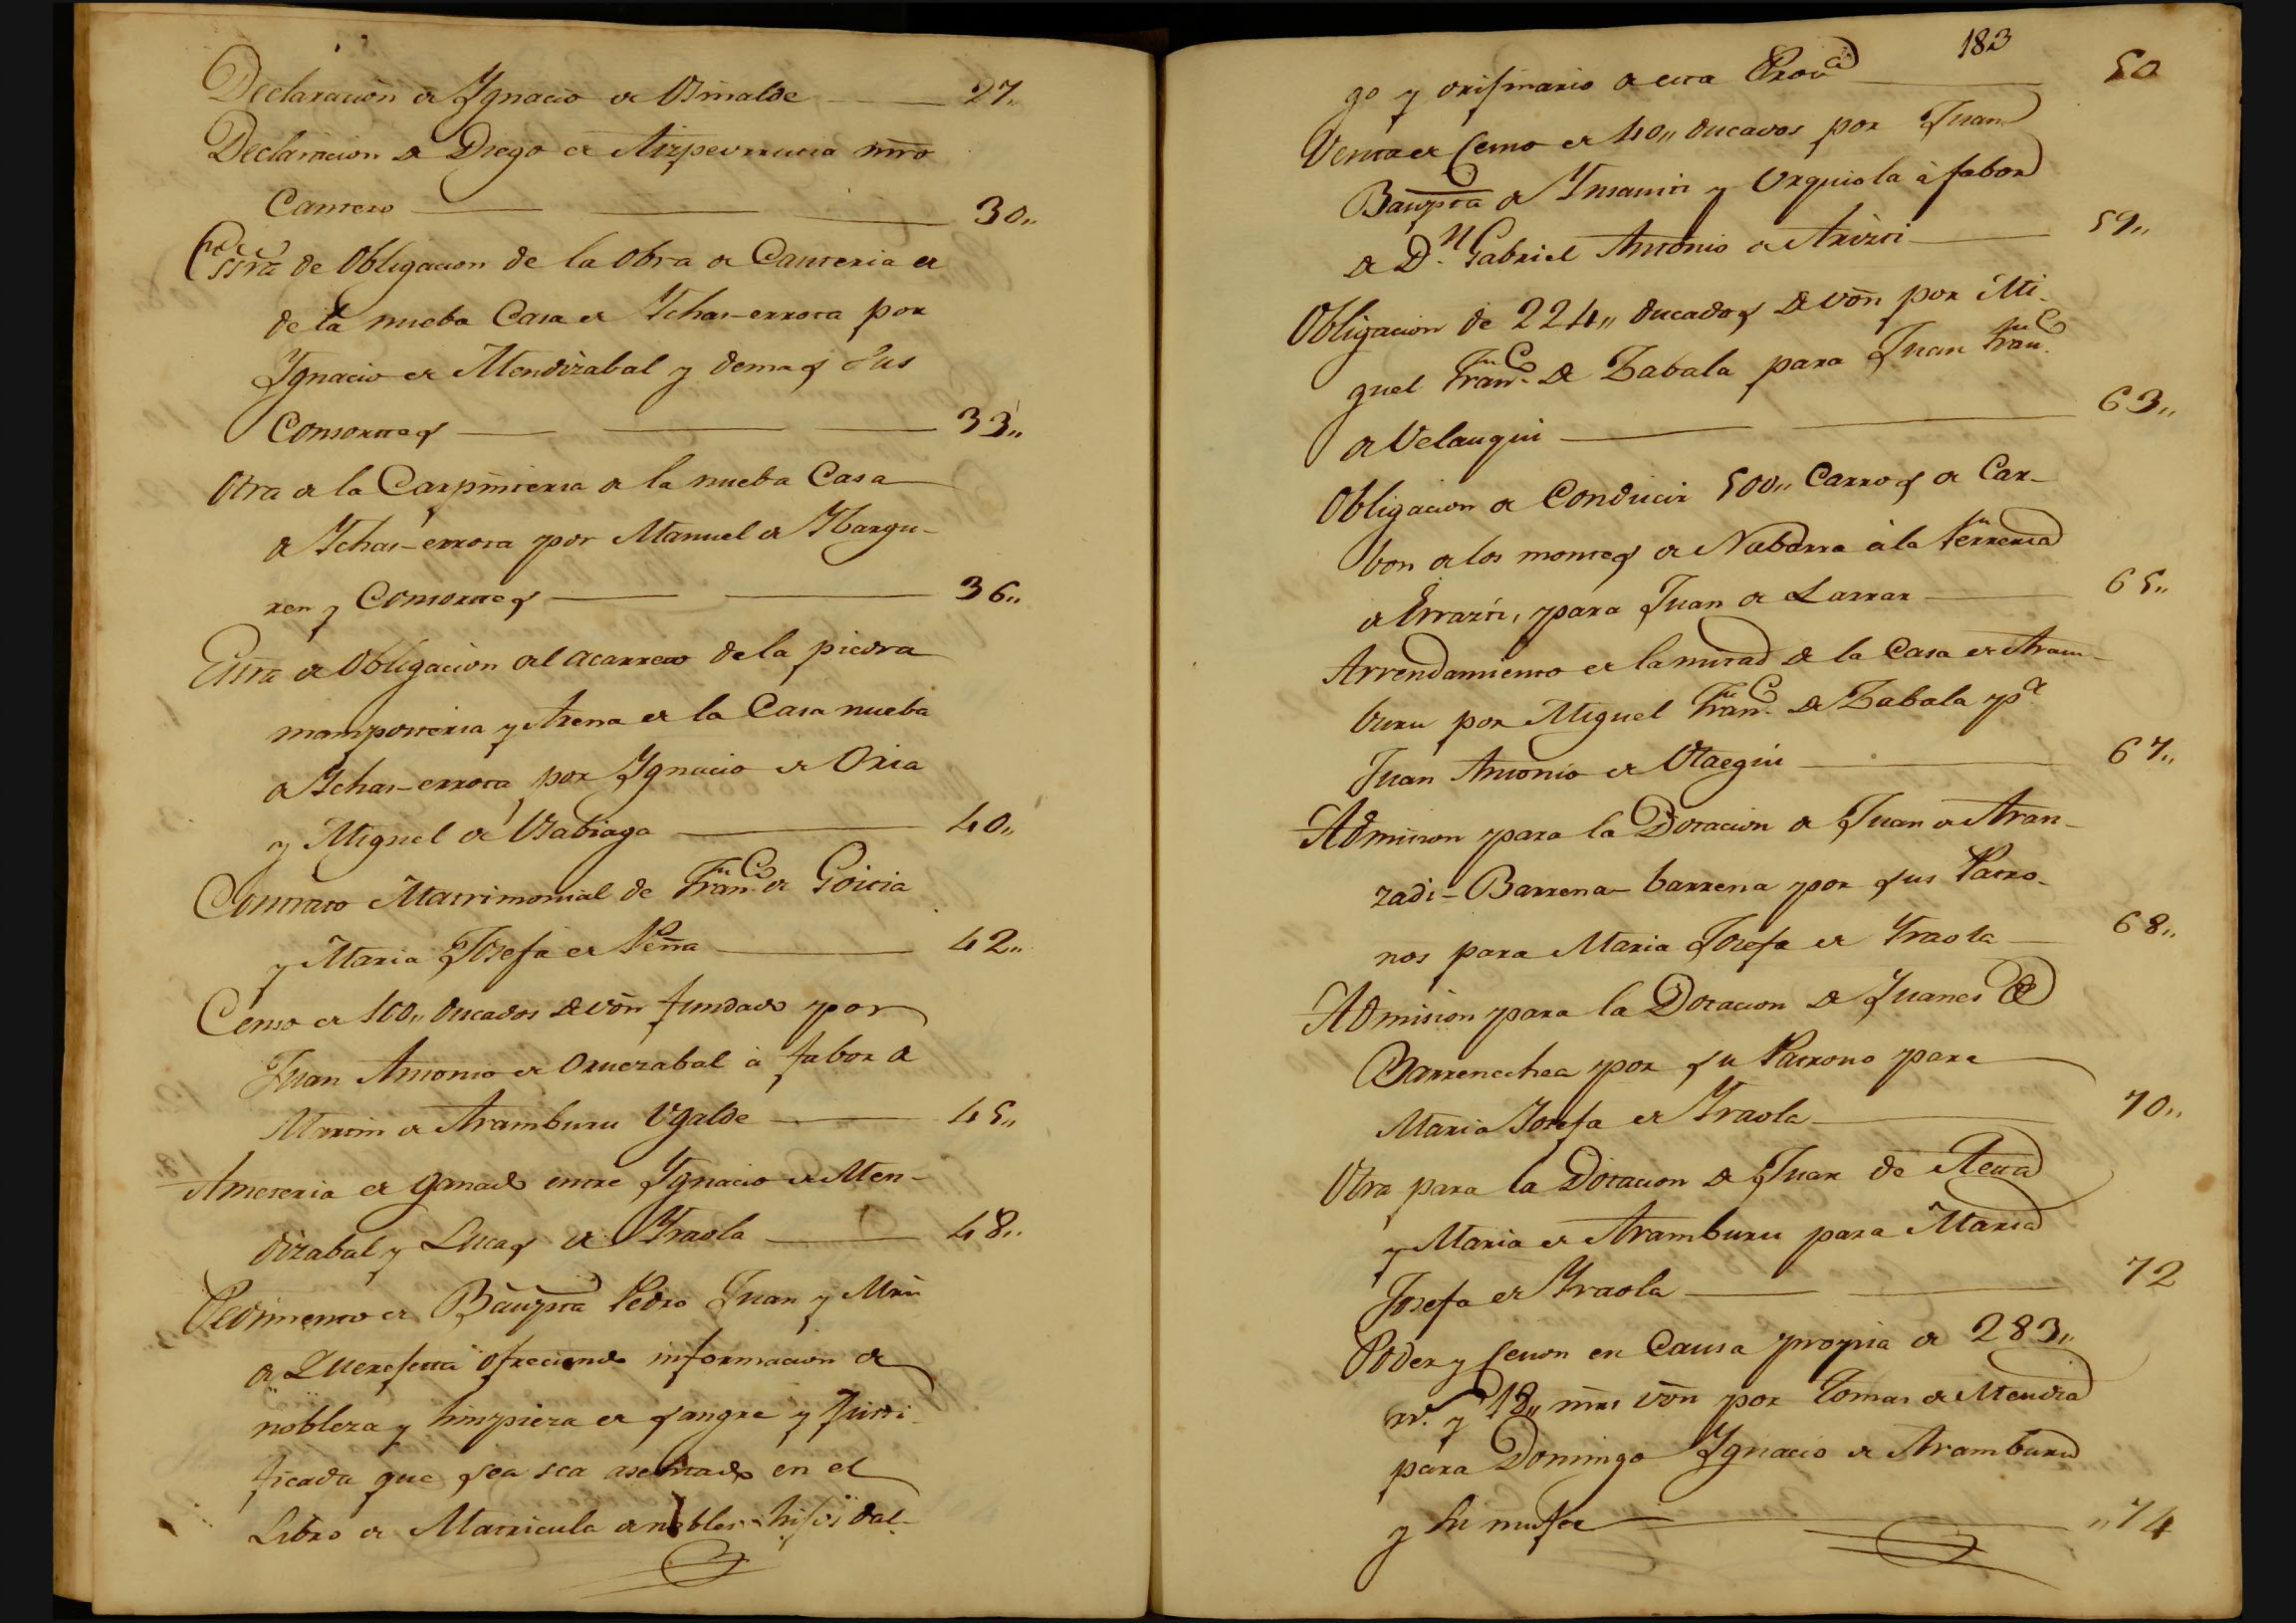 Declaracion de Ygnacio de Vsinalde 27,,
Declaracion de Diego de Aizpeurrutia mro
Cantero 30,,
Essra de Obligacion de la obra de Canteria de
de la nueba Casa de Ychas-errota por
Ygnacio de Mendizabal y demas sus
Consortes 33,,
Otra de la Carpinteria de la nueba Casa
de Ychas-errota por Manuel de Ybargu-
ren y Consortes 36,,
Essra de Obligacion del acarreo de la piedra
mamposteria y Arena de la Casa nueba
de Ychas-errota por Ygnacio de Oria
y Miguel de Vsabiaga 40,,
Contrato Matrimonial de Franco de Goicia
y Maria Josefa de Peña 42,,
Censo de 100,, ducados de von fundado por
Juan Antonio de Oruezabal à fabor de
Martin de Aramburu Vgalde 45,,
Ameteria de ganado entre Ygnacio de Men-
dizabal y Lucas de Yraola 48,,
Pedimento de Bauptta Pedro Juan y Mrn
de Querejetta ofreciendo informacion de
nobleza y limpieza de sangre y Justi-
ficada que sea sea asentado en el
Libro de Matricula de nobles hijos dal-
183
go y orijinario de esta Prova 50
Venta de Censo de 110,, ducados por Juan
Bauptta de Ynsausti y Urquiola à fabor
de Dn Gabriel Antonio de Arizti 59,,
Obligacion de 224,, ducados de von por Mi-
guel Franco de Zabala para Juan Franco
de Velaugui 63,,
Obligacion de Conducir 500,, Carros de Car-
bon de los montes de Nabarra à la ferreria
de Errazti, para Juan de Larrar 65,,
Arrendamiento de la mitad de la Casa de Aram-
buru por Miguel Franco de Zabala pa
Juan Antonio de Otaegui 67,,
Admision para la Dotacion de Juan de Aran-
zadi-Barrena-barrena por sus Patro-
nos para Maria Josefa de Yraola 68,,
Admision para la Dotacion de Juanes de
Barrenechea por su Patrono para
Maria Josefa de Yraola 70,,
Otra para la Dotacion de Juan de
y Maria de Aramburu para Maria
Josefa de Yraola 72
Poder y Cesion en Causa propria de 283,,
rr. y 18,, mrs von por Tomas de Mendia
para Domingo Ygnacio de Aramburu
y su mujer ,,74